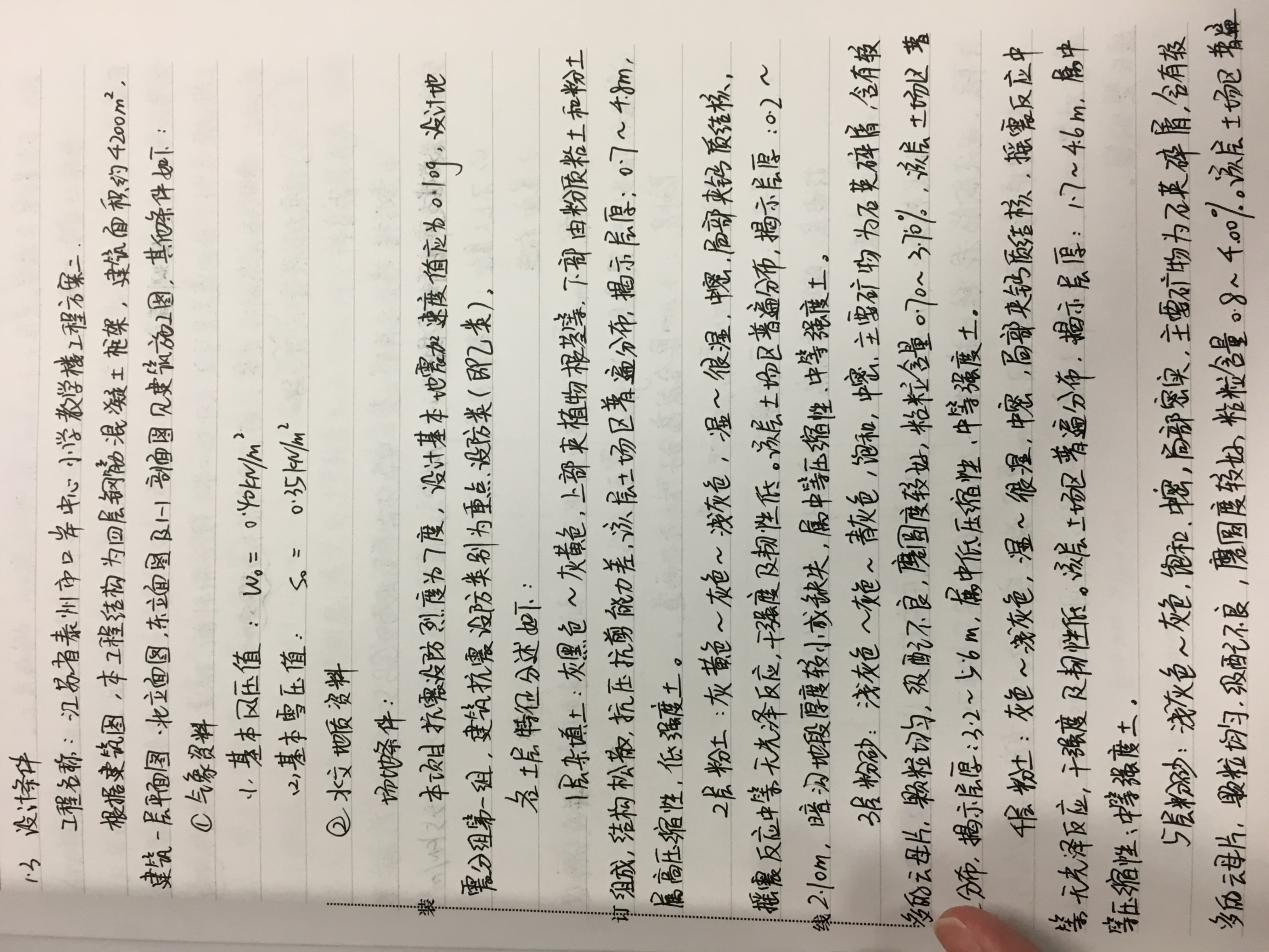 1.3 设计条件
工程名称:江苏省泰州市口岸中心小学教学楼工程方案二.
根据建筑图,本工程结构为四层钢筋混凝土框架,建筑面积约4200m²,
建筑一层平面图.北立面图,东立面图及1-1剖面图见建筑施工图,其他条件如下:
① 气象资料
(1. 基本风压值: W₀= 0.40kN/m²
(2)基本雪压值: S₀= 0.35kN/m²
② 水文地质资料
场地条件:
本项目抗震设防烈度为7度,设计基本地震加速度值应为0.10g,设计地
震分组第一组,建筑抗震设防类别为重点设防类(即乙类).
各土层特征分述如下:
1层杂填土:灰黑色~灰黄色,上部夹植物根茎等,下部由粉质粘土和粉土
组成,结构松散,抗压抗剪能力差,该层土场区普遍分布,揭示层厚:0.7~4.8m,
属高压缩性,低强度土。
2层粉土:灰黄色~灰色~浅灰色,湿~很湿,中密,局部夹钙质结核,
摇震反应中等,无光泽反应,干强度及韧性低。该层土场区普遍分布,揭示层厚:0.2~
2.10m,暗沟地段厚度较小或缺失,属中等压缩性、中等强度土。
3层粉砂:浅灰色~灰色~青灰色,饱和,中密,主要矿物为石英碎屑,含有较
多的云母片,颗粒均匀,级配不良,磨圆度较好,粘粒含量0.70~3.70%,该层土场区普
分布,揭示层厚:3.2~5.6m,属中低压缩性、中等强度土。
4层粉土:灰色~浅灰色,湿~很湿,中密,局部夹钙质结核,摇震反应中
等,无光泽反应,干强度及韧性低。该层土场区普遍分布,揭示层厚:1.7~4.6m,属中
等压缩性;中等强度土。
5层粉砂:浅灰色~灰色,饱和.中密,局部密实,主要矿物为石英碎屑,含有较
多的云母片,颗粒均匀,级配不良,磨圆度较好,粘粒含量0.8~4.00%。该层土场区普遍
装
订
线